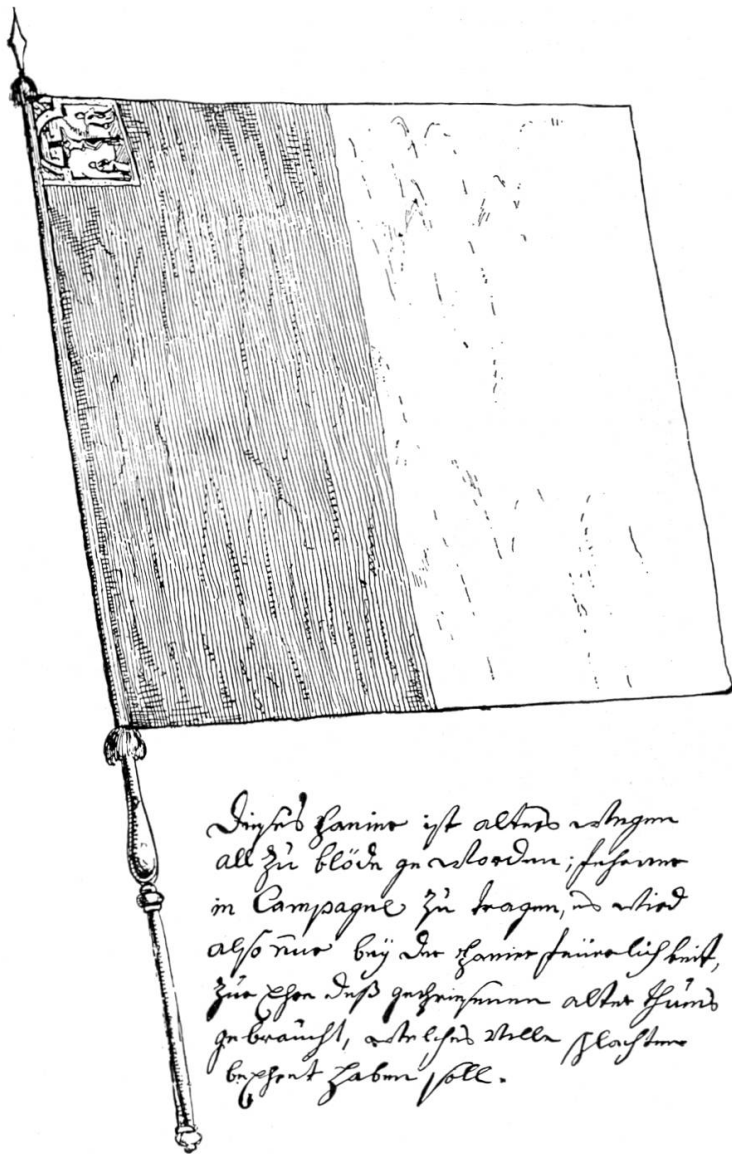 Dieses Panier ist alters Wegen
all zu blöde geWorden; fehrner
in Campagne zu tragen, es Wird
also nur beÿ der Panier feürlichkeit,
zur Ehre deß gepriesenen alter thums
gebraucht, Welches Ville Slachten
beehret haben soll.